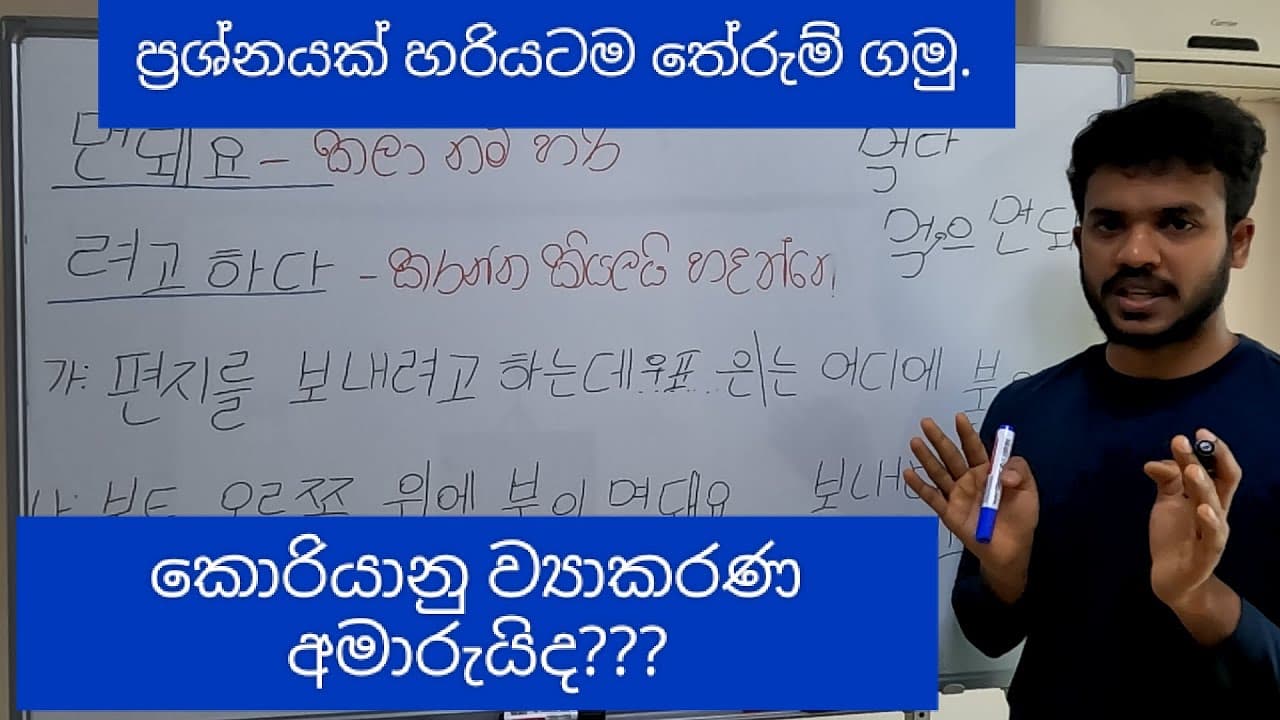 ප්‍රශ්නයක් හරියටම තේරුම් ගමු.
Carrier
면 되 요 - කලා නම් හරි
먹다
려고 하다 - කරන්න කියලයි හදන්නෙ.
먹으면 되
가: 편지를 보내려고 하는데 우표 은/는 어디에 붙
보통 오른쪽 위에 붙이 면 돼요
보내
කොරියානු ව්‍යාකරණ
අමාරුයිද???